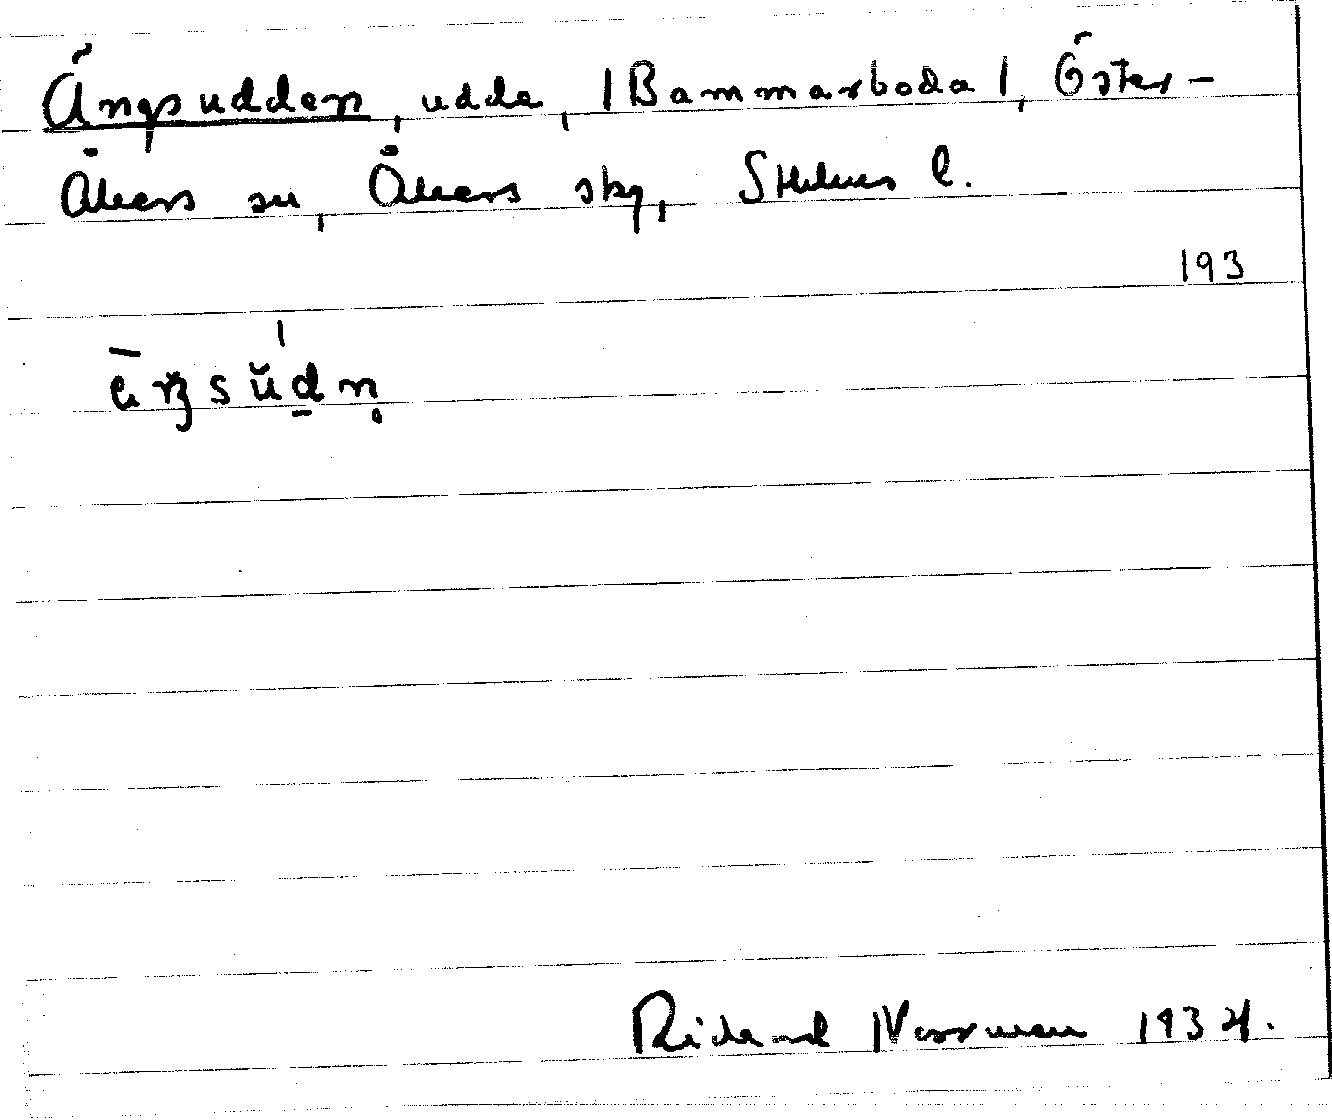 Ängsudden, udde, |Bammarboda|, Öster-
Åkers sn, Åkers skg, Sthlms l.
193
Rickard Norrman 1934.